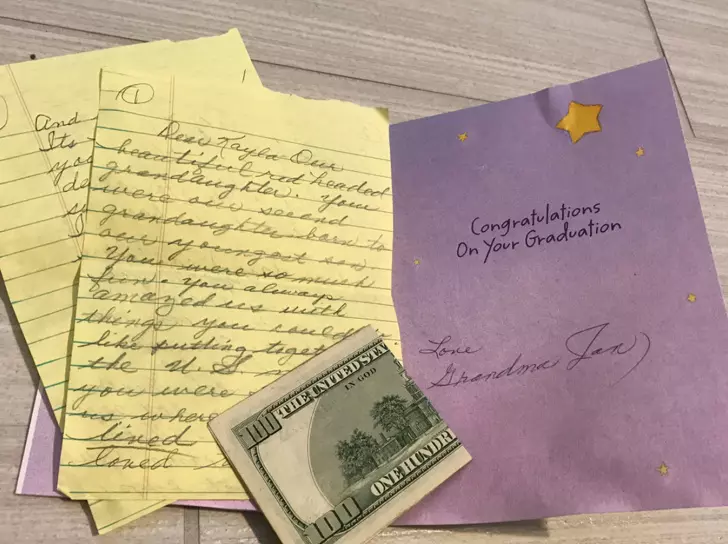 And
Its
you
1
Dear Kayla - Our
beautiful red headed
grandaughter. You
were our second
grandaughter born to
our youngest son
You were so much
fun. You always
amazed us with
things you could
like putting toget
the U.S
you were
us where
lived
loved
100 THE UNITED STA
IN GOD
100 ONE HUNDR
Congratulations
On Your Graduation
Love
Grandma Jan